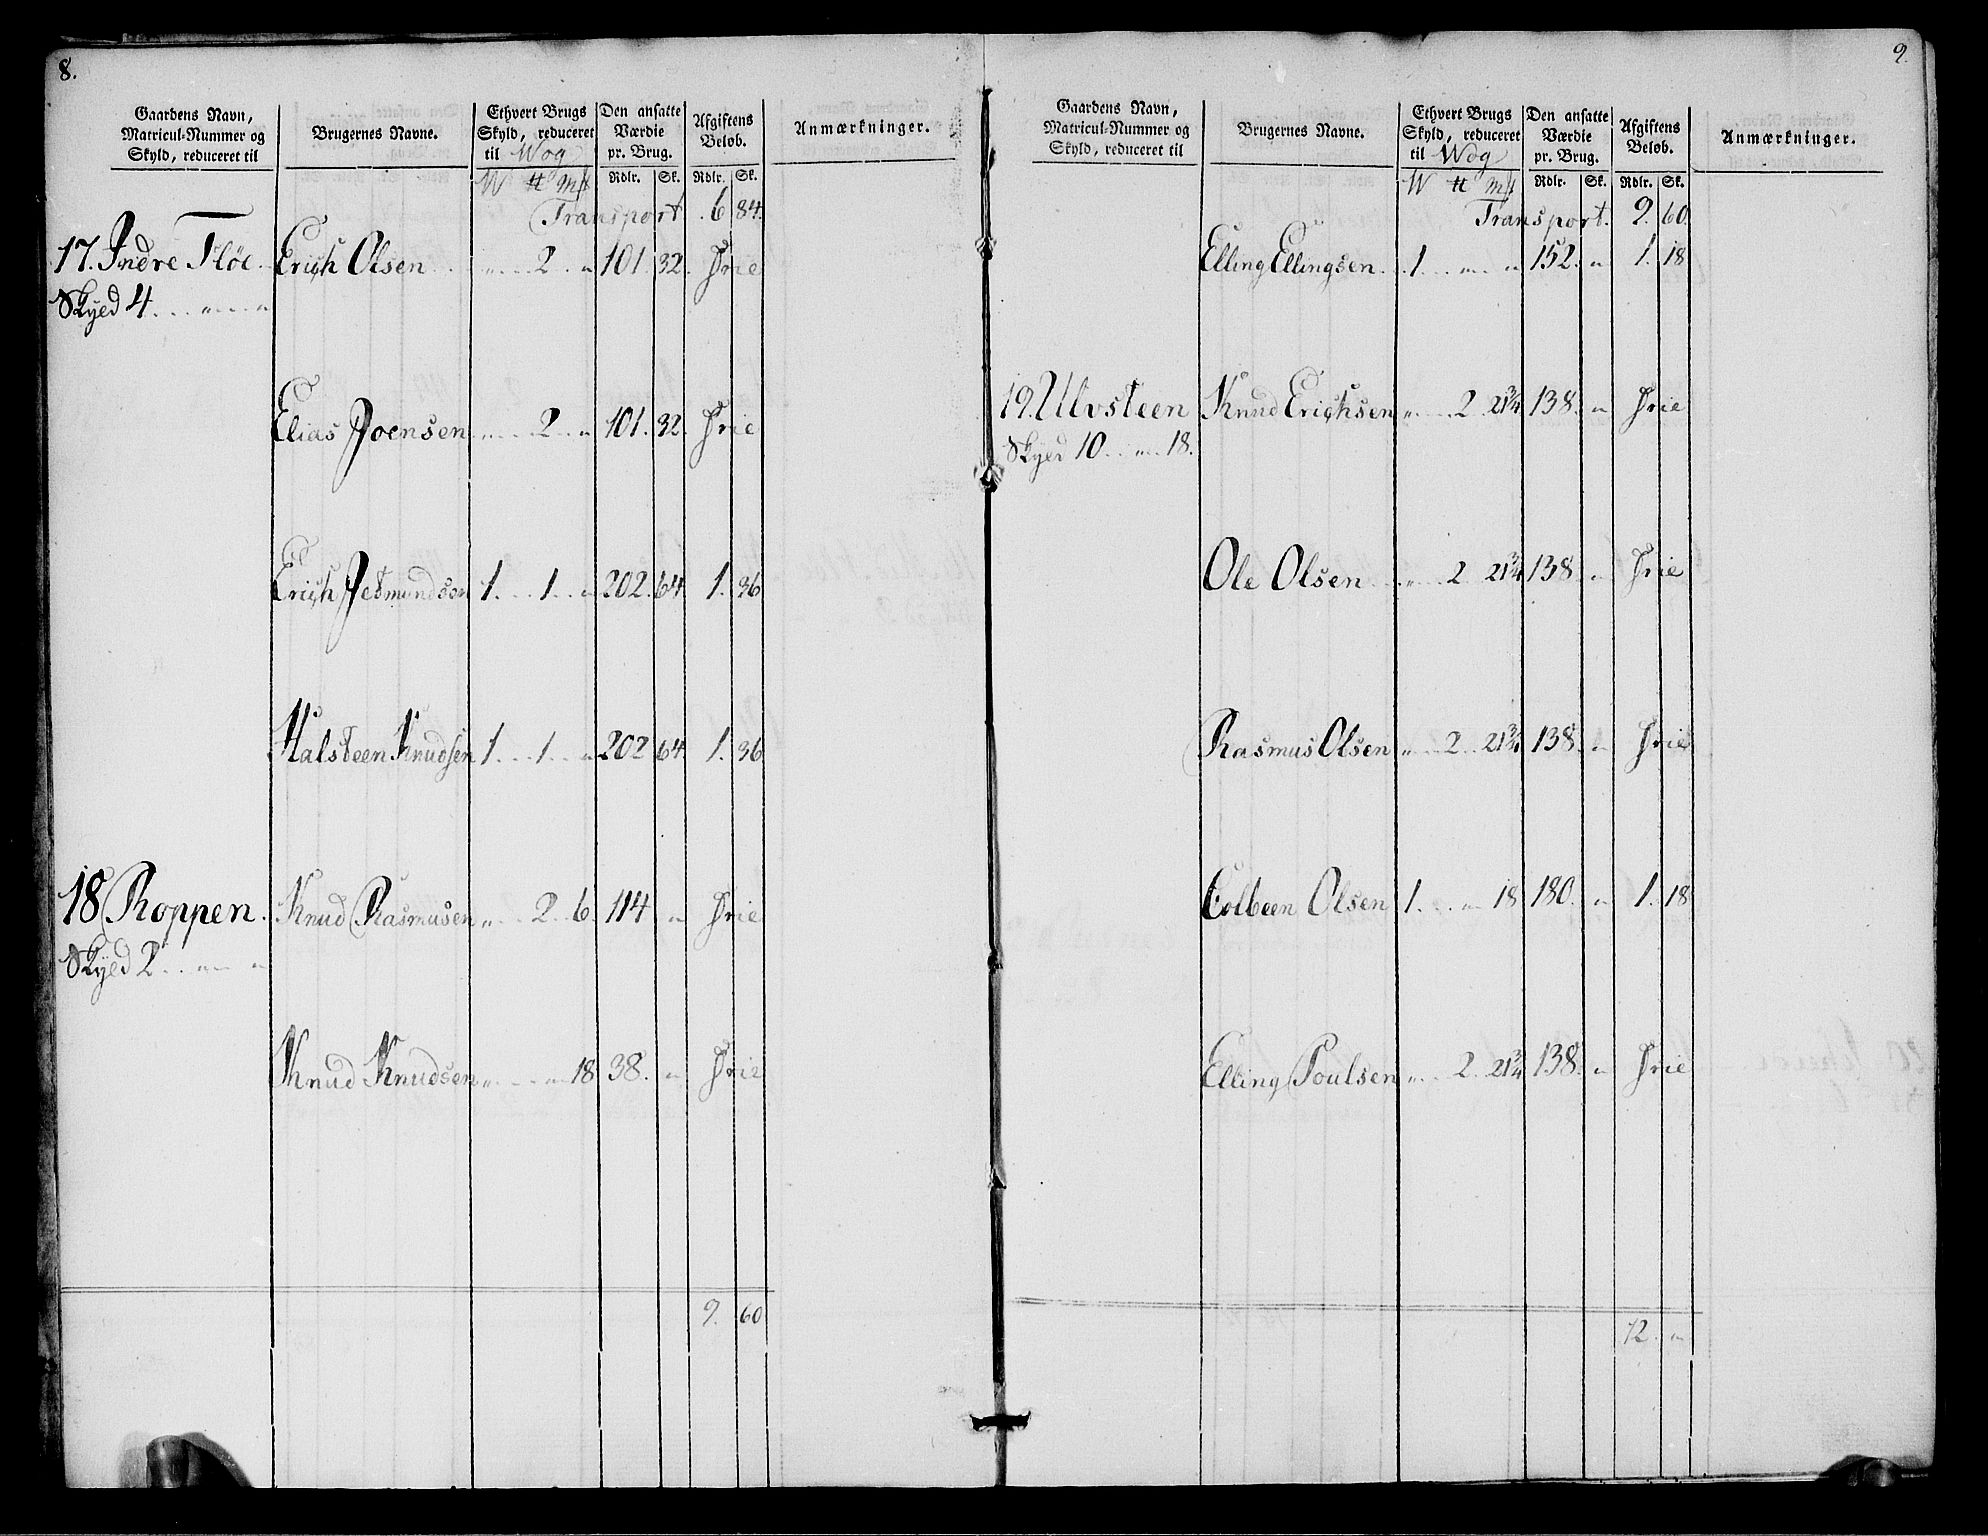 8.
Gaardens Navn, Matricul-Nummer og Skyld, reduceret til | Brugernes Navne. | Ethvert Brugs Skyld, reduceret til Wog | Den ansatte Værdie pr. Brug. | Afgiftens Beløb. | Anmærkninger.
W ℔ Mk | Rdlr. | Sk. | Rdlr. | Sk.
Transport 6 84.
17. Indre Fløe Erich Olsen „ 2 „ 101 32. Frie
Skyed 4 „ „
Elias Joensen „ 2 „ 101. 32. Frie
Erich Jetmundsen 1 1 „ 202. 64 1. 36
Halsteen Knudsen 1 1 „ 202 64 1. 36
18 Roppen. Knud Rasmusen „ 2 6. 114 „ Frie
Skyed 2 „ „
Knud Knudsen „ „ 18 38. „ Frie
9. 60
9.
Gaardens Navn, Matricul-Nummer og Skyld, reduceret til | Brugernes Navne. | Ethvert Brugs Skyld, reduceret til Wog | Den ansatte Værdie pr. Brug. | Afgiftens Beløb. | Anmærkninger.
W ℔ Mk | Rdlr. | Sk. | Rdlr. | Sk.
Transport. 9. 60.
Elling Ellingsen 1 „ „ 152. „ 1. 18
19. Ulvsteen Knud Erichsen „ 2 21¾ 138. „ Frie
Skyed 10 „ 18.
Ole Olsen „ 2 21¾ 138. „ Frie
Rasmus Olsen „ 2 21¾ 138. „ Frie
Colbeen Olsen 1 „ 18 180. „ 1. 18
Elling Poulsen „ 2 21¾ 138. „ Frie
12. „